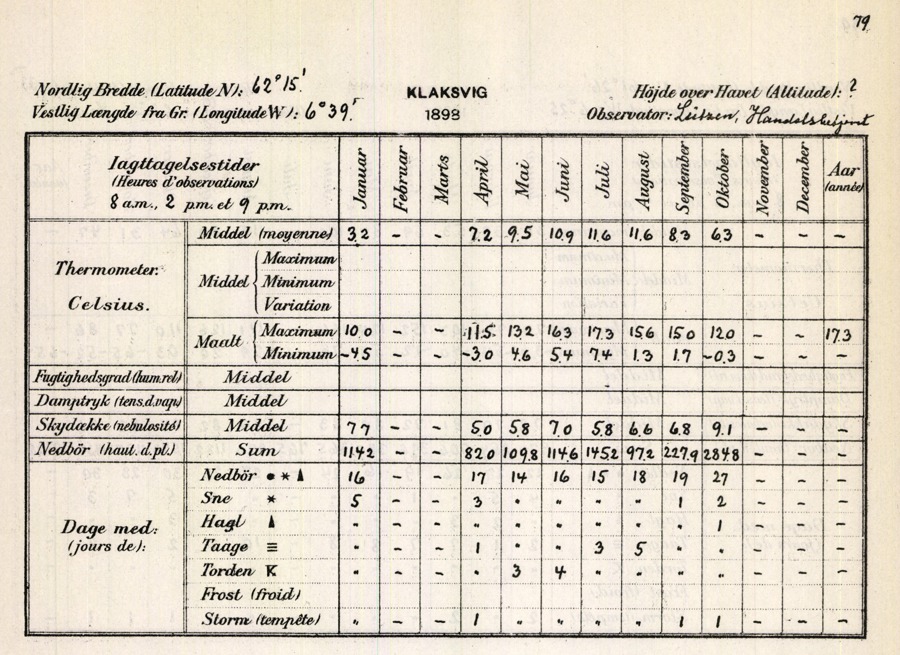 79
Nordlig Bredde (Latitude N): 62°15' KLAKSVIG Höjde over Havet (Altitude): ?
Vestlig Længde fra Gr. (Longitude W): 6°39' 1898 Observator: Leitzen, Handelsbetjent
Iagttagelsestider (Heures d'observations) 8 a.m., 2 p.m. et 9 p.m. Januar Februar Marts April Mai Juni Juli August September Oktober November December Aar (année)
Thermometer. Celsius.
Middel (moyenne) 3.2 – – 7.2 9.5 10.9 11.6 11.6 8.3 6.3 – – –
Middel Maximum
Minimum
Variation
Maalt Maximum 10.0 – – 11.5 13.2 16.3 17.3 15.6 15.0 12.0 – – 17.3
Minimum –4.5 – – –3.0 4.6 5.4 7.4 1.3 1.7 –0.3 – – –
Fugtighedsgrad (hum.rel) Middel
Damptryk (tens.d.vap.) Middel
Skydække (nebulosité) Middel 7.7 – – 5.0 5.8 7.0 5.8 6.6 6.8 9.1 – – –
Nedbör (haut.d.pl.) Sum 114.2 – – 82.0 109.8 114.6 145.2 97.2 227.9 284.8 – – –
Dage med: (jours de):
Nedbör ● * ▲ 16 – – 17 14 16 15 18 19 27 – – –
Sne * 5 – – 3 " " " " 1 2 – – –
Hagl ▲ " – – " " " " " " 1 – – –
Taage ≡ " – – 1 " " 3 5 " " – – –
Torden K " – – " 3 4 " " " " – – –
Frost (froid)
Storm (tempête) " – – 1 " " " " 1 1 – – –